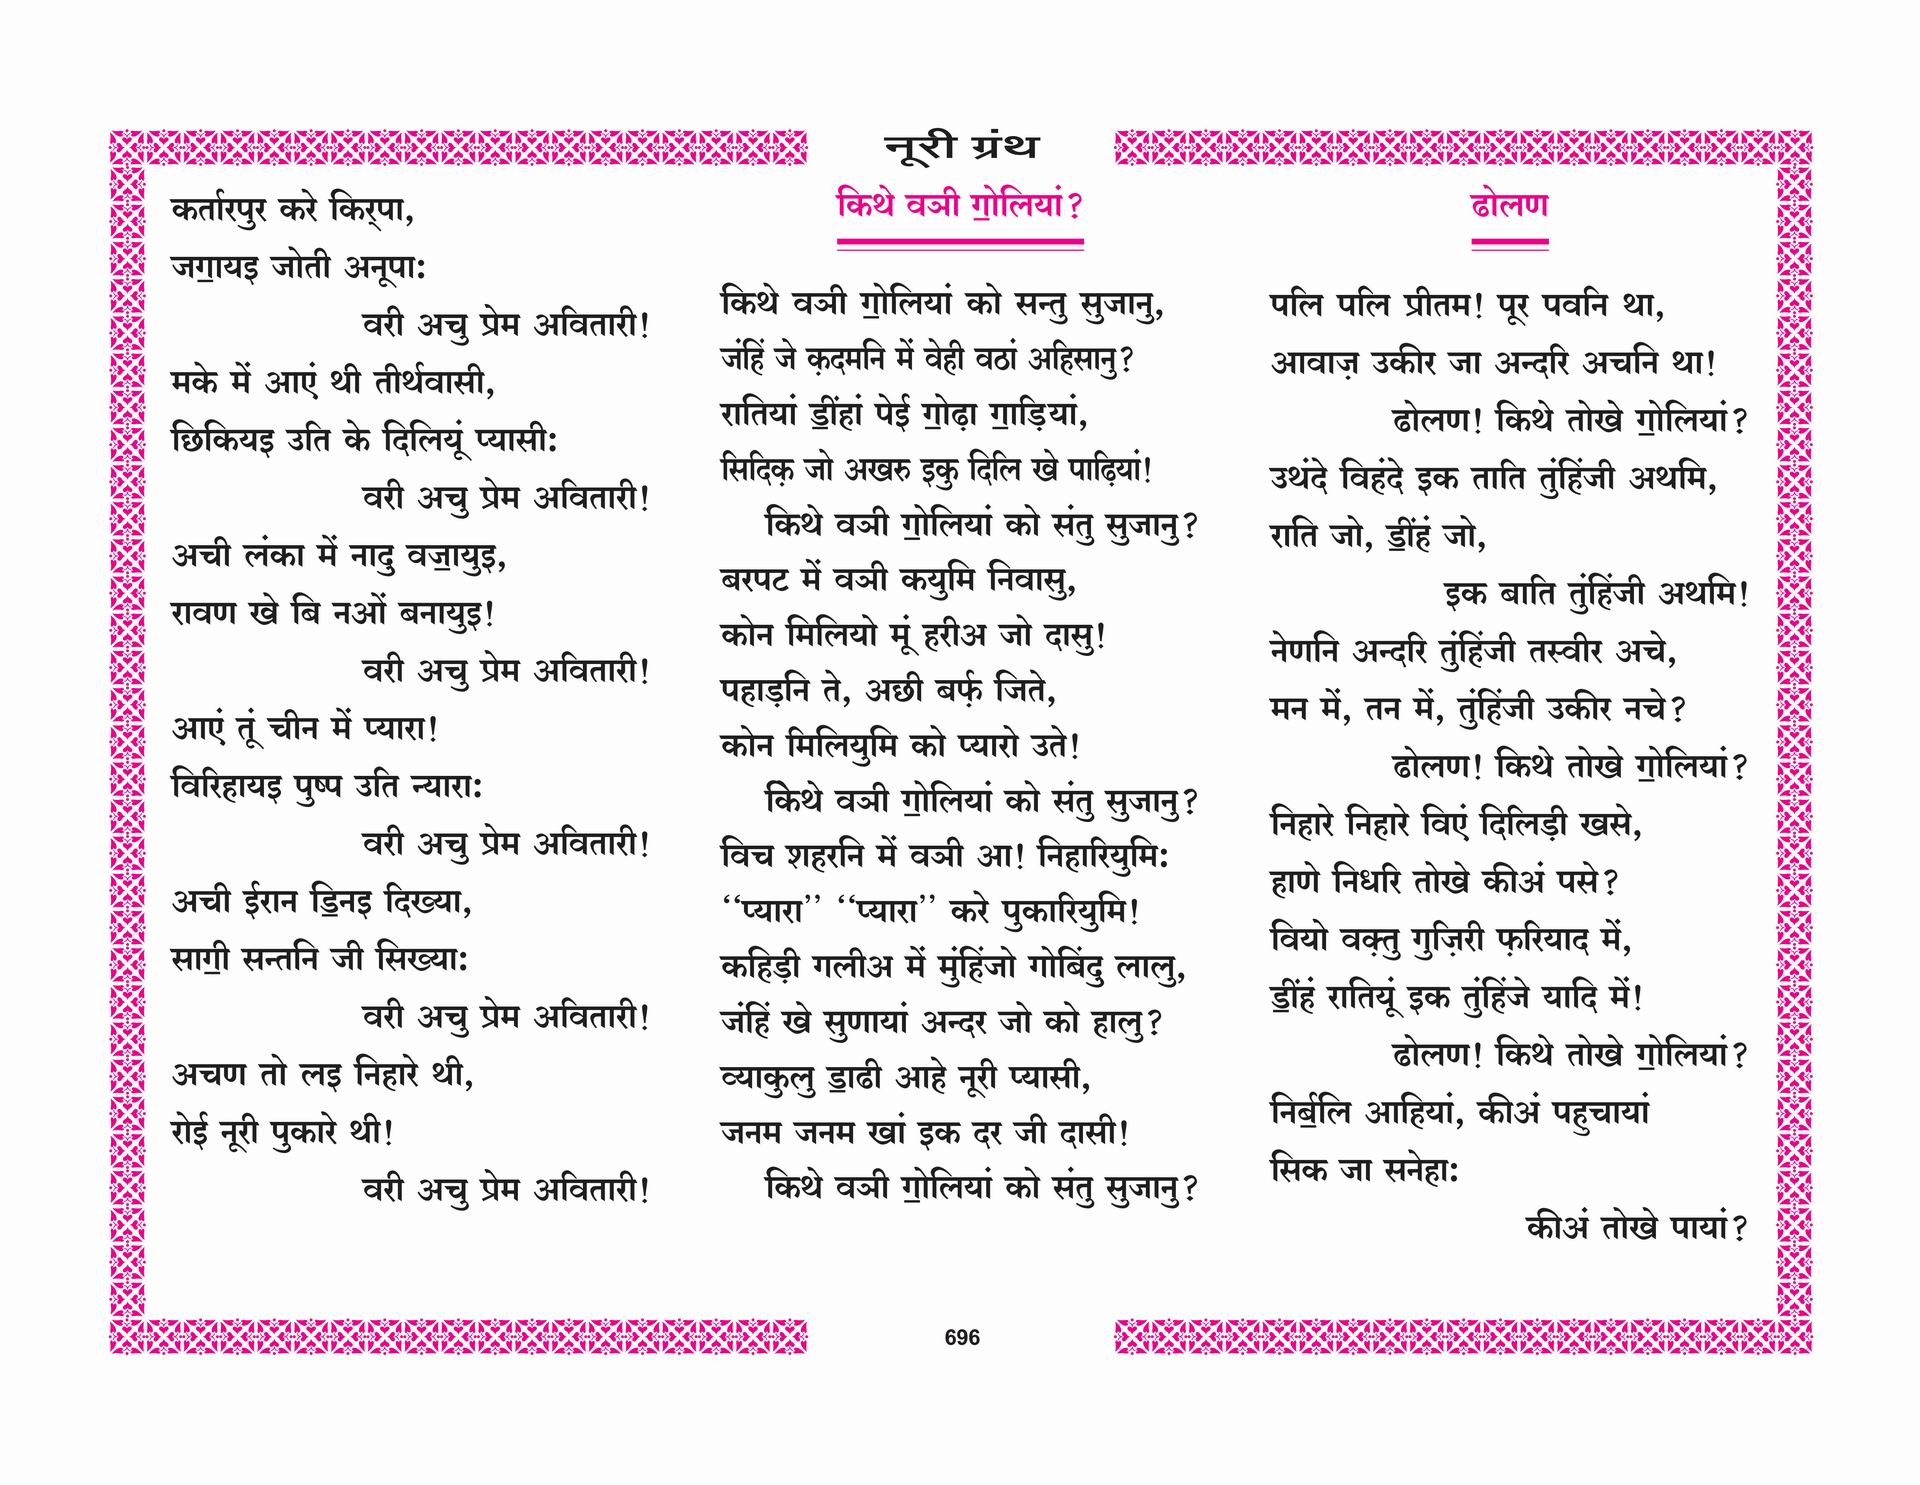 नूरी ग्रंथ
कर्तारपुर करे किर्‌पा,
जॻायइ जोती अनूपा:
वरी अचु प्रेम अवितारी!
मके में आएं थी तीर्थवासी,
छिकियइ उति के दिलियूं प्यासी:
वरी अचु प्रेम अवितारी!
अची लंका में नादु वॼायुइ,
रावण खे बि नओं बनायुइ!
वरी अचु प्रेम अवितारी!
आएं तूं चीन में प्यारा!
विरिहायइ पुष्प उति न्यारा:
वरी अचु प्रेम अवितारी!
अची ईरान ॾिनइ दिख्या,
साॻी सन्तनि जी सिख्या:
वरी अचु प्रेम अवितारी!
अचण तो लइ निहारे थी,
रोई नूरी पुकारे थी!
वरी अचु प्रेम अवितारी!
किथे वञी ॻोलियां?
किथे वञी ॻोलियां को सन्तु सुजानु,
जंहिं जे क़दमनि में वेही वठां अहिसानु?
रातियां ॾींहां पेई ॻोढ़ा ॻाड़ियां,
सिदिक़ जो अखरु इकु दिलि खे पाढ़ियां!
किथे वञी ॻोलियां को संतु सुजानु?
बरपट में वञी कयुमि निवासु,
कोन मिलियो मूं हरीअ जो दासु!
पहाड़नि ते, अछी बर्फ़ जिते,
कोन मिलियुमि को प्यारो उते!
किथे वञी ॻोलियां को संतु सुजानु?
विच शहरनि में वञी आ! निहारियुमि:
‘‘प्यारा’’ ‘‘प्यारा’’ करे पुकारियुमि!
कहिड़ी गलीअ में मुंहिंजो गोबिंदु लालु,
जंहिं खे सुणायां अन्दर जो को हालु?
व्याकुलु ॾाढी आहे नूरी प्यासी,
जनम जनम खां इक दर जी दासी!
किथे वञी ॻोलियां को संतु सुजानु?
ढोलण
पलि पलि प्रीतम! पूर पवनि था,
आवाज़ उकीर जा अन्दरि अचनि था!
ढोलण! किथे तोखे ॻोलियां?
उथंदे विहंदे इक ताति तुंहिंजी अथमि,
राति जो, ॾींहं जो,
इक बाति तुंहिंजी अथमि!
नेणनि अन्दरि तुंहिंजी तस्वीर अचे,
मन में, तन में, तुंहिंजी उकीर नचे?
ढोलण! किथे तोखे ॻोलियां?
निहारे निहारे विएं दिलिड़ी खसे,
हाणे निधरि तोखे कीअं पसे?
वियो वक़्तु गुज़िरी फ़रियाद में,
ॾींहं रातियूं इक तुंहिंजे यादि में!
ढोलण! किथे तोखे ॻोलियां?
निर्ॿलि आहियां, कीअं पहुचायां
सिक जा सनेहा:
कीअं तोखे पायां?
696